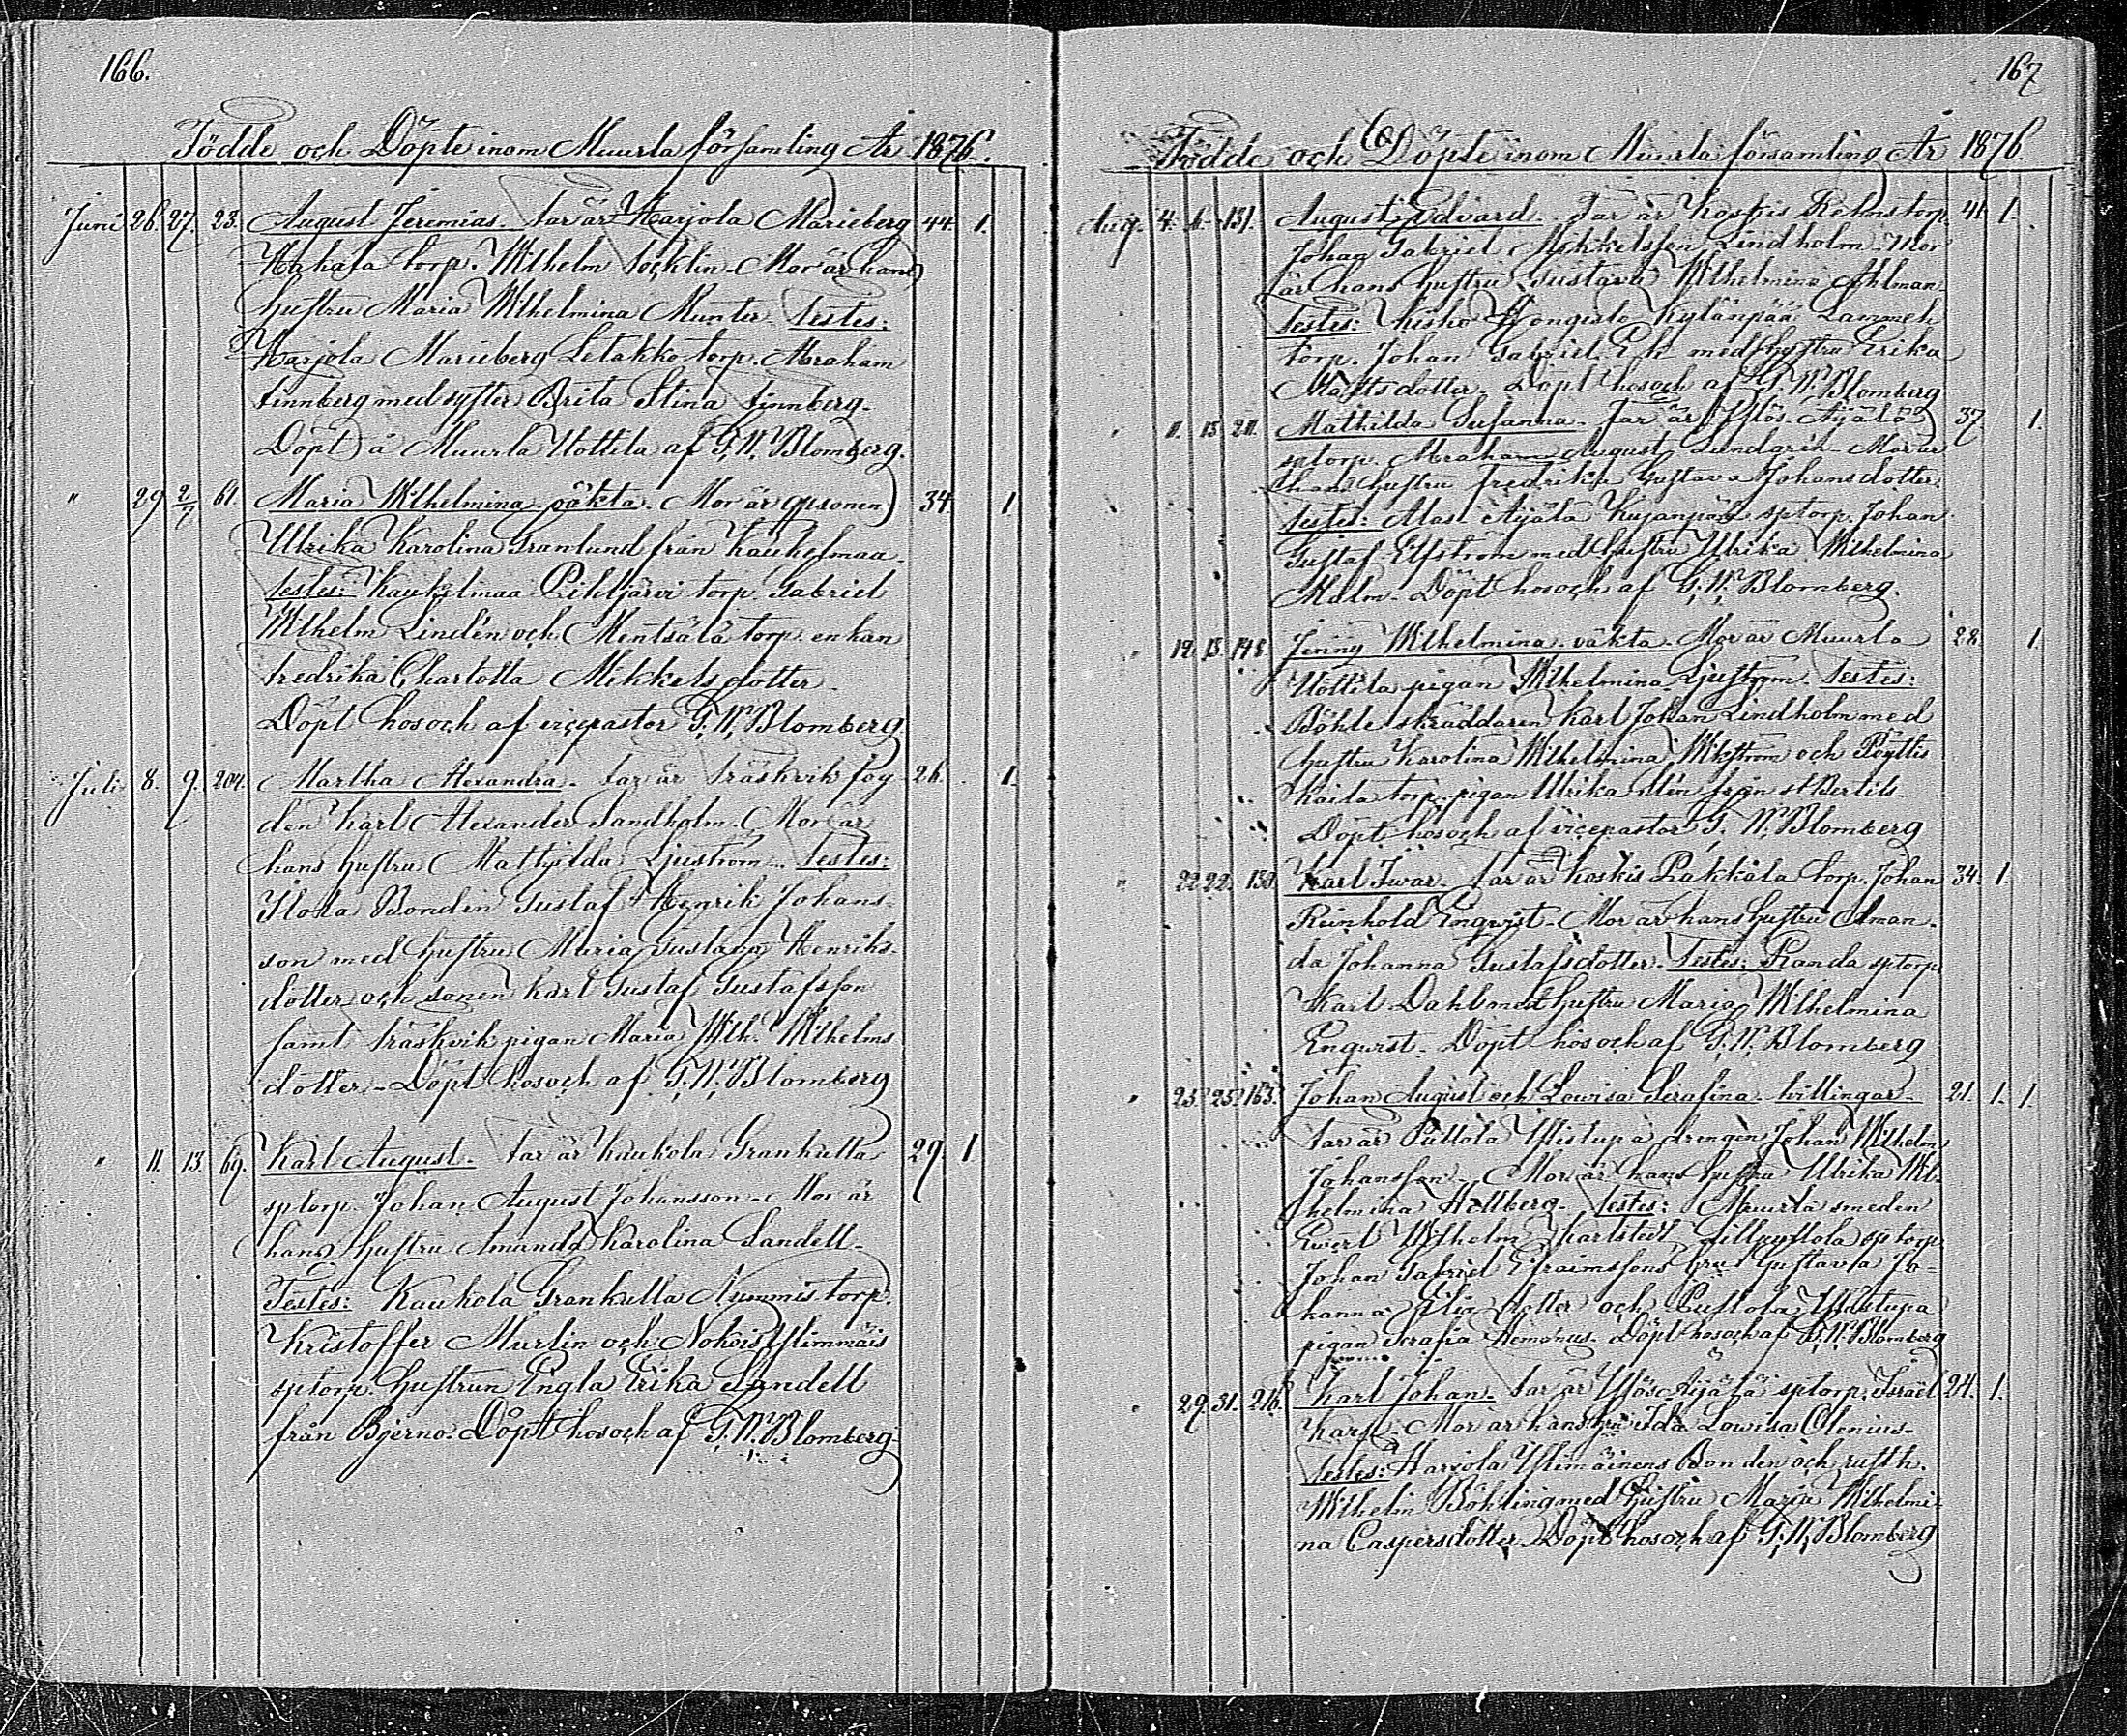 166.
Födde och Döpte inom Muurla församling År 1876.
Juni 26. 27. 23. August Jeremias. Far är Harjola Marieberg 44. 1.
Hakala torp. Wilhelm Socklin. Mor är hans
hustru Maria Wilhelmina Munter. Testes:
Harjola Marieberg Letakko torp. Abraham
Finnberg med syster Brita Stina Finnberg.
Döpt å Muurla Uottila af G. W. Blomberg.
" 29 2/7 61. Maria Wilhelmina oäkta. Mor är qpsonen 34. 1
Ulrika Karolina Granlund från Kaukelmaa.
Testes: Kaukelmaa Pihljärvi torp. Gabriel
Wilhelm Lindén och Mentsälä torp. enkan
Fredrika Charlotta Mikkelsdotter.
Döpt hos och af vicepastor G. W. Blomberg.
Juli 8. 9. 204. Martha Alexandra. Far är Träskvik fog- 26. 1.
den Karl Alexander Sandholm. Mor är
hans hustru Mathilda Ljuström. Testes:
Ilola Bonden Gustaf Henrik Johans-
son med hustru Maria Gustava Henriks-
dotter och sonen Karl Gustaf Gustafsson
samt Träskvik pigan Maria Wilh. Wilhelms
dotter. Döpt hos och af G. W. Blomberg
" 11. 13. 69. Karl August. Far är Kaukola Grankulla 29. 1.
sptorp. Johan August Johansson. Mor är
hans hustru Amanda Karolina Sandell.
Testes: Kaukola Grankulla Nummis torp.
Kristoffer Murlin och Nokois Ylimmäis
sptorp. hustrun Engla Erika Sandell
från Bjerno. Döpt hos och af G. W. Blomberg.
167
Födde och Döpte inom Muurla församling År 1876.
Aug. 4. 6. 131. August Edvard. Far är Koskis Rehnstorp. 41. 1.
Johan Gabriel Mikkelsson Lindholm. Mor
är hans hustru Gustava Wilhelmina Ahlman.
Testes: Kisko Hongisto Kylänpää Lammeh
torp. Johan Gabriel Ek med hustru Erika
Mattsdotter. Döpt hos och af G. W. Blomberg
" 11. 13. 211. Mathilda Susanna. Far är Yllös Äijälä 37 1.
sptorp. Abraham August Lundgrén. Mor är
hans hustru Fredrika Gustava Johansdotter.
Testes: Alas Äijälä Kujanpää sptorp. Johan
Gustaf Elfström med hustru Ulrika Wilhelmina
Malm. Döpt hos och af G. W. Blomberg.
" 12. 13. 148. Jenny Wilhelmina oäkta. Mor är Muurla 28. 1.
Uottila pigan Wilhelmina Ljuström. Testes:
Böhle skräddaren Karl Johan Lindholm med
hustru Karolina Wilhelmina Wikström och Pöyltis
Kaila torp. pigan Ulrika Elin från St Bertils.
Döpt hos och af vicepastor G. W. Blomberg
" 22. 22. 130. Karl Iwar. Far är Koskis Pakkala torp. Johan 34. 1.
Reinhold Enqvist. Mor är hans hustru Aman-
da Johanna Gustafsdotter. Testes: Randa sptorp
Karl Dahl med hustru Maria Wilhelmina
Enqvist. Döpt hos och af G. W. Blomberg
" 25. 25. 163. Johan August och Lowisa Serafina tvillingar. 21. 1. 1.
Far är Pullola Yllistupa drengen Johan Wilhelm
Johansson. Mor är hans hustru Ulrika Wil-
helmina Hellberg. Testes: Muurla smeden
Evert Wilhelm Karlstedt sptorp
Johan Gabriel Efraimssons hru Gustava Jo-
hanna dotter och Pullola Yllistupa
pigan Serafia Hemonus. Döpt hos och af G. W. Blomberg
" 29. 31. 216. Karl Johan. Far är Yllös Äijälä sptorp. Israel 24. 1.
Karf. Mor är hans hru Ida Lowisa Olenius.
Testes: Harjola Ylimäinens Bonden och rusth.
Wilhelm Böhling med hustru Maria Wilhelmi-
na Caspersdotter. Döpt hos och af G. W. Blomberg